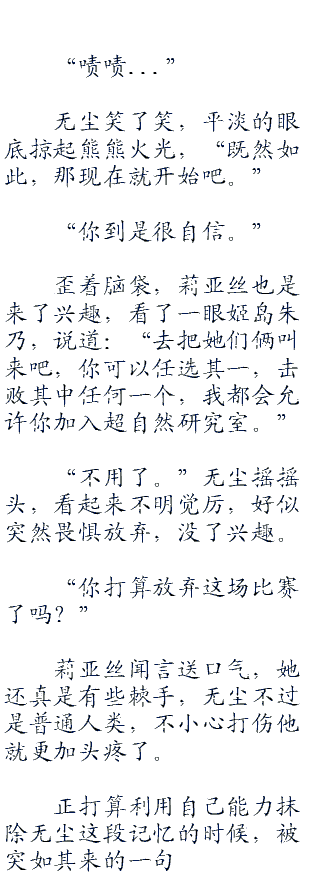 “啧啧...”
无尘笑了笑，平淡的眼
底掠起熊熊火光，“既然如
此，那现在就开始吧。”
“你到是很自信。”
歪着脑袋，莉亚丝也是
来了兴趣，看了一眼姬岛朱
乃，说道：“去把她们俩叫
来吧，你可以任选其一，击
败其中任何一个，我都会允
许你加入超自然研究室。”
“不用了。”无尘摇摇
头，看起来不明觉厉，好似
突然畏惧放弃，没了兴趣。
“你打算放弃这场比赛
了吗？”
莉亚丝闻言送口气，她
还真是有些棘手，无尘不过
是普通人类，不小心打伤他
就更加头疼了。
正打算利用自己能力抹
除无尘这段记忆的时候，被
突如其来的一句